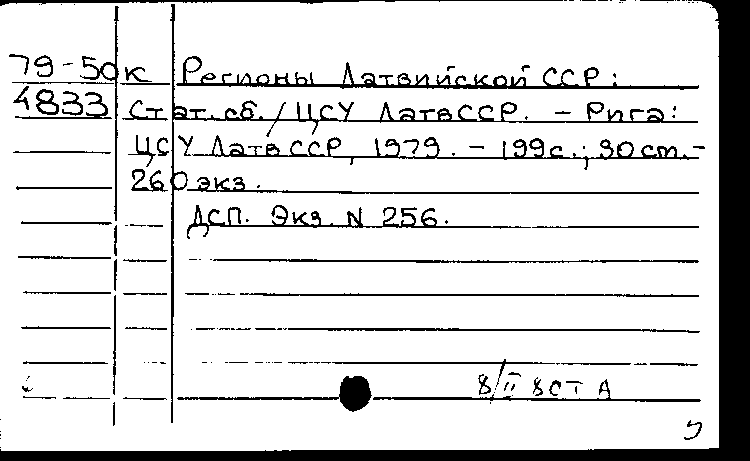 79-50к Регионы Латвийской ССР:
4833 Стат. сб. / ЦСУ ЛатвССР. - Рига:
ЦСУ ЛатвССР, 1979. - 199с.; 30 cm. -
260 экз.
ДСП. Экз. N 256.
8/II 8 СТ А